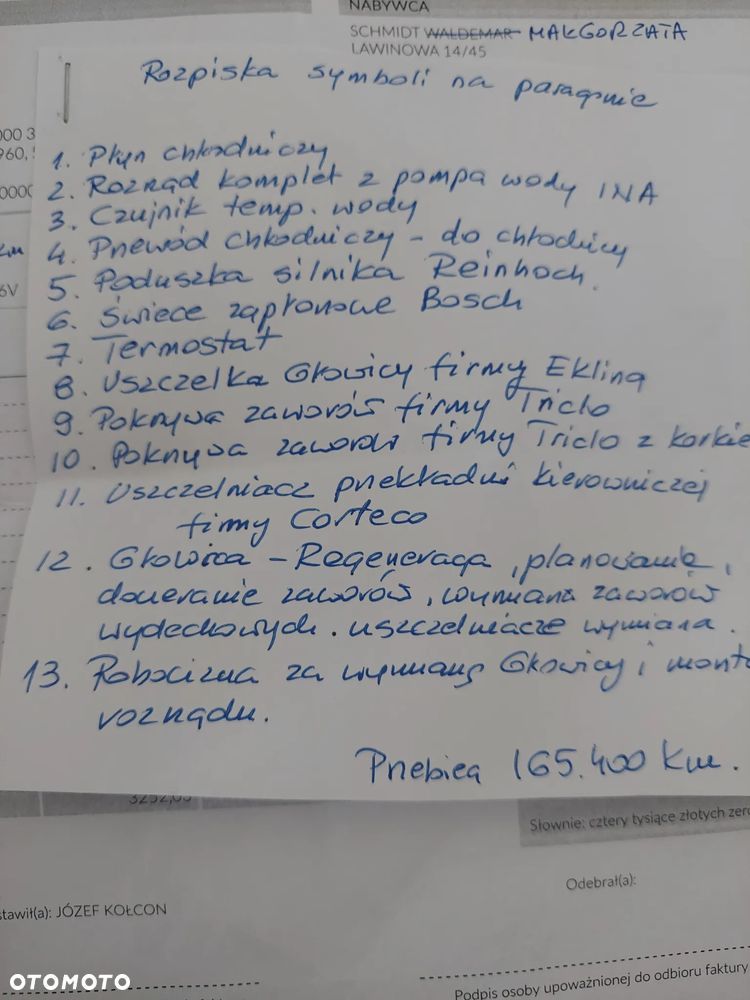 NABYWCA
SCHMIDT WALDEMAR MAŁGORZATA
LAWINOWA 14/45
Rozpiska symboli na paragonie
000 3
960,
0000
km
6V
1. Płyn chłodniczy
2. Rozrząd komplet z pompa wody INA
3. Czujnik temp. wody
4. Przewód chłodniczy - do chłodnicy
5. Poduszka silnika Reinhoch.
6. Świece zapłonowe Bosch
7. Termostat
8. Uszczelka Głowicy firmy Ekling
9. Pokrywa zaworów firmy Triclo
10. Pokrywa zaworów firmy Triclo z korkie
11. Uszczelniacz przekładni kierowniczej
firmy Corteco
12. Głowica - Regeneracja, planowanie,
docieranie zaworów, wymiana zaworów
wydechowych. uszczelniacze wymiana.
13. Robocizna za wymianę Głowicy i monta
rozrządu.
Przebieg 165.400 km.
3252,03
Słownie: cztery tysiące złotych zero
Odebrał(a):
stawił(a): JÓZEF KOŁCON
Podpis osoby upoważnionej do odbioru faktury
OTOMOTO